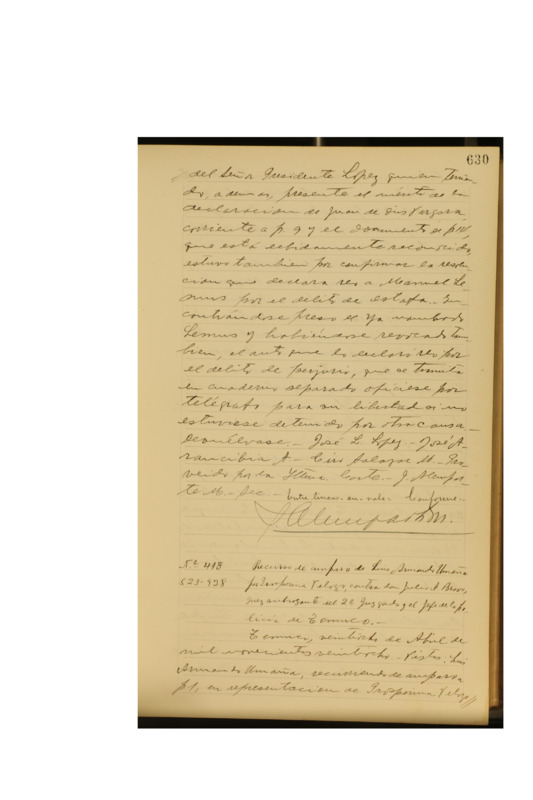 630
del Señor Presidente Lopez quien tenien-
do, ademas, presente el mérito de la
declaracion de Juan de Dios Vergara,
corriente a f. 9 y el documento de f.
que está debidamente reconocido,
estuvo tambien por confirmar la resolu-
cion que declara reo a Manuel Le-
mus por el delito de estafa. En
contrándose preso el ya nombrado
Lemus y habiéndose revocado tam-
bien, el auto que lo declaró reo por
el delito de perjurio, que se tramita
en cuaderno separado ofíciese por
telégrafo para su libertad si no
estuviese detenido por otra causa.-
Devuélvase.- José L. Lopez - José A-
rancibia A - Ciro Salazar M. - Pro-
veido por la Iltma. Corte.- J.
te M. - Sec.- Entre lineas - en - vale - Conforme.-
Nº 418
523-928
Recurso de amparo de Luis Armando Umaña
por contra don Julio A.
juez subrogante del 2º Juzgado y el Jefe de la Po-
licia de Temuco.-
Temuco, veintiocho de Abril de
mil novecientos veintiocho.- Vistos: Luis
Armando Umaña, recurriendo de amparo a
f. 1, en representacion de